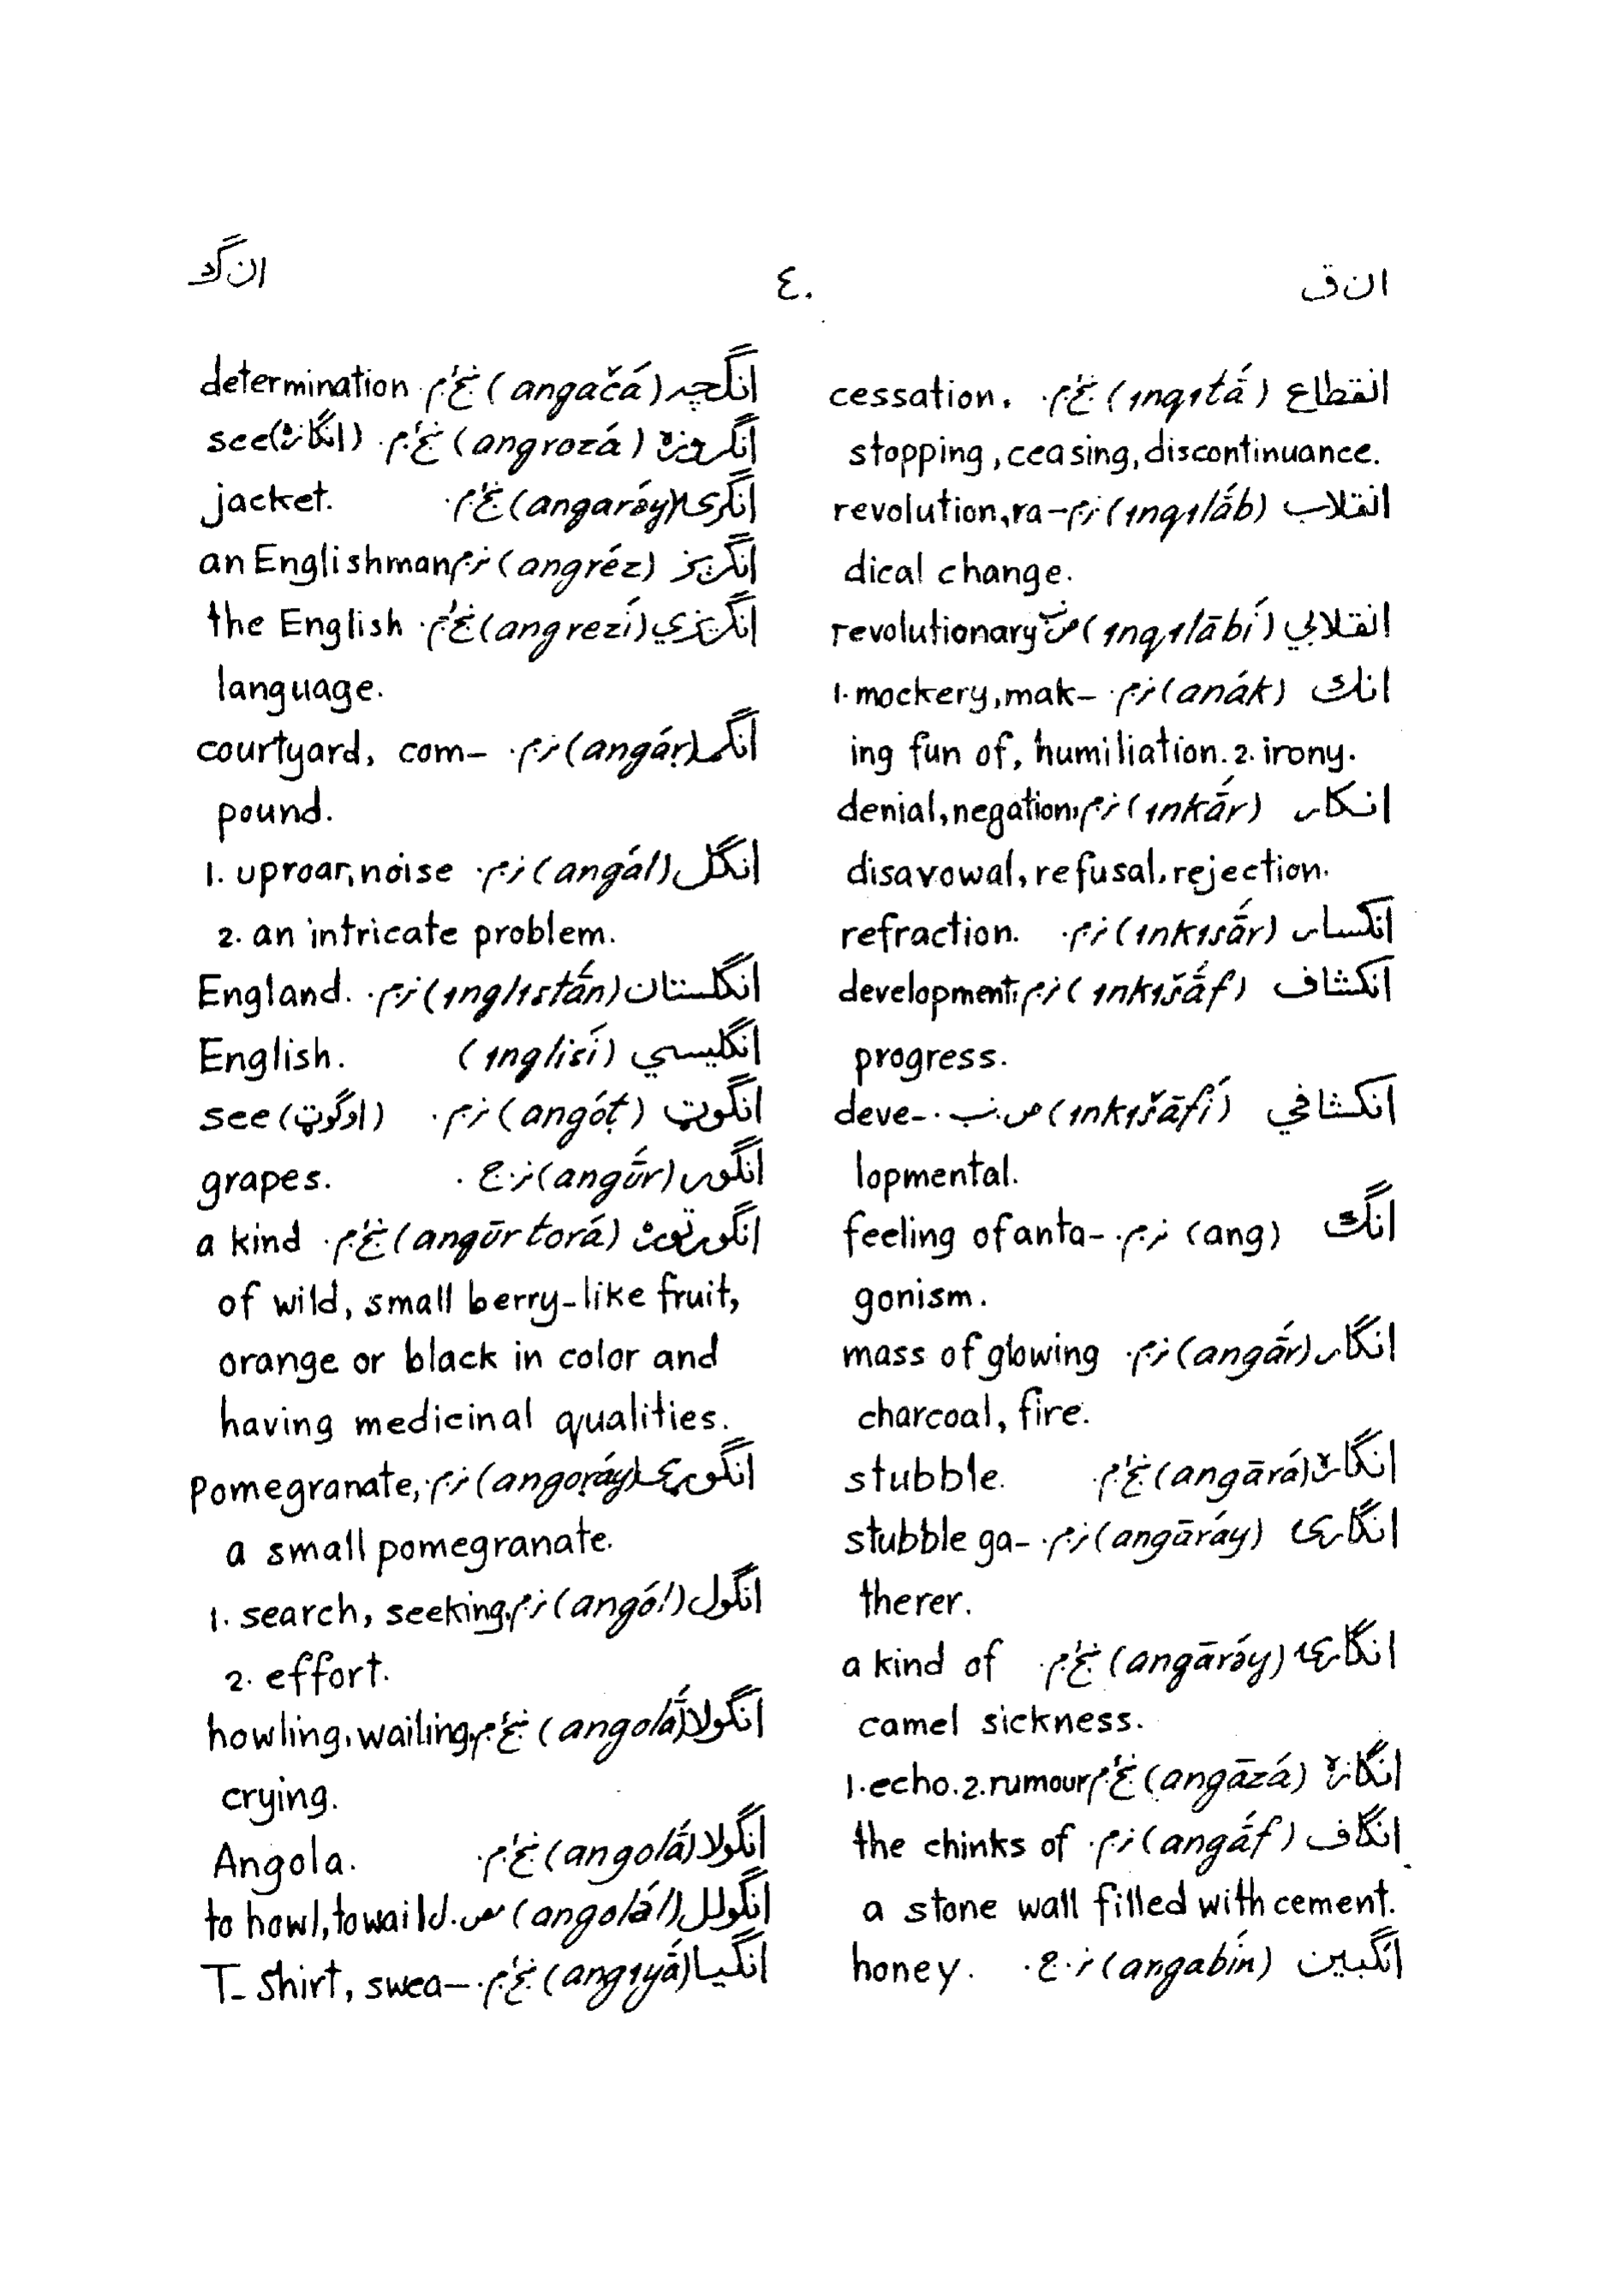 ان ق
٤٠
ان گ
انقطاع (ınqıtā́) ښځ.م. cessation,
stopping, ceasing, discontinuance.
انقلاب (ınqılā́b) نر.م. revolution, ra-
dical change.
انقلابي (ınqılābí) ص.ب. revolutionary
انك (anák) نر.م. 1. mockery, mak-
ing fun of, humiliation. 2. irony.
انكار (ınkā́r) نر.م. denial, negation,
disavowal, refusal, rejection.
انكسار (ınkısā́r) نر.م. refraction.
انكشاف (ınkıšā́f) نر.م. development,
progress.
انكشافي (ınkıšāfí) ص.ب. deve-
lopmental.
انگ (ang) نر.م. feeling of anta-
gonism.
انگار (angā́r) نر.م. mass of glowing
charcoal, fire.
انگاره (angārá) ښځ.م. stubble.
انگاری (angāráy) نر.م. stubble ga-
therer.
انگارۍ (angārə́y) ښځ.م. a kind of
camel sickness.
انگازه (angāzá) ښځ.م. 1. echo. 2. rumour
انگاف (angā́f) نر.م. the chinks of
a stone wall filled with cement.
انگبين (angabín) نر.ج. honey.
انگچه (angačá) ښځ.م. determination
انگروزه (angrozá) ښځ.م. see (انگازه)
انگرۍ (angarə́y) ښځ.م. jacket.
انگرېز (angréz) نر.م. an Englishman
انگرېزي (angrezí) ښځ.م. the English
language.
انگړ (angáṛ) نر.م. courtyard, com-
pound.
انگل (angál) نر.م. 1. uproar, noise
2. an intricate problem.
انگلستان (ınglıstā́n) نر.م. England.
انگليسي (ınglisí) English.
انگوټ (angóṭ) نر.م. see (اوگوټ)
انگور (angū́r) نر.ج. grapes.
انگورتوره (angūrtorá) ښځ.م. a kind
of wild, small berry-like fruit,
orange or black in color and
having medicinal qualities.
انگوړی (angoṛáy) نر.م. Pomegranate,
a small pomegranate.
انگول (angól) نر.م. 1. search, seeking,
2. effort.
انگولا (angolā́) ښځ.م. howling, wailing,
crying.
انگولا (angolā́) ښځ.م. Angola.
انگولل (angolə́l) مص.ل. to howl, to wail
انگيا (angıyā́) ښځ.م. T-Shirt, swea-